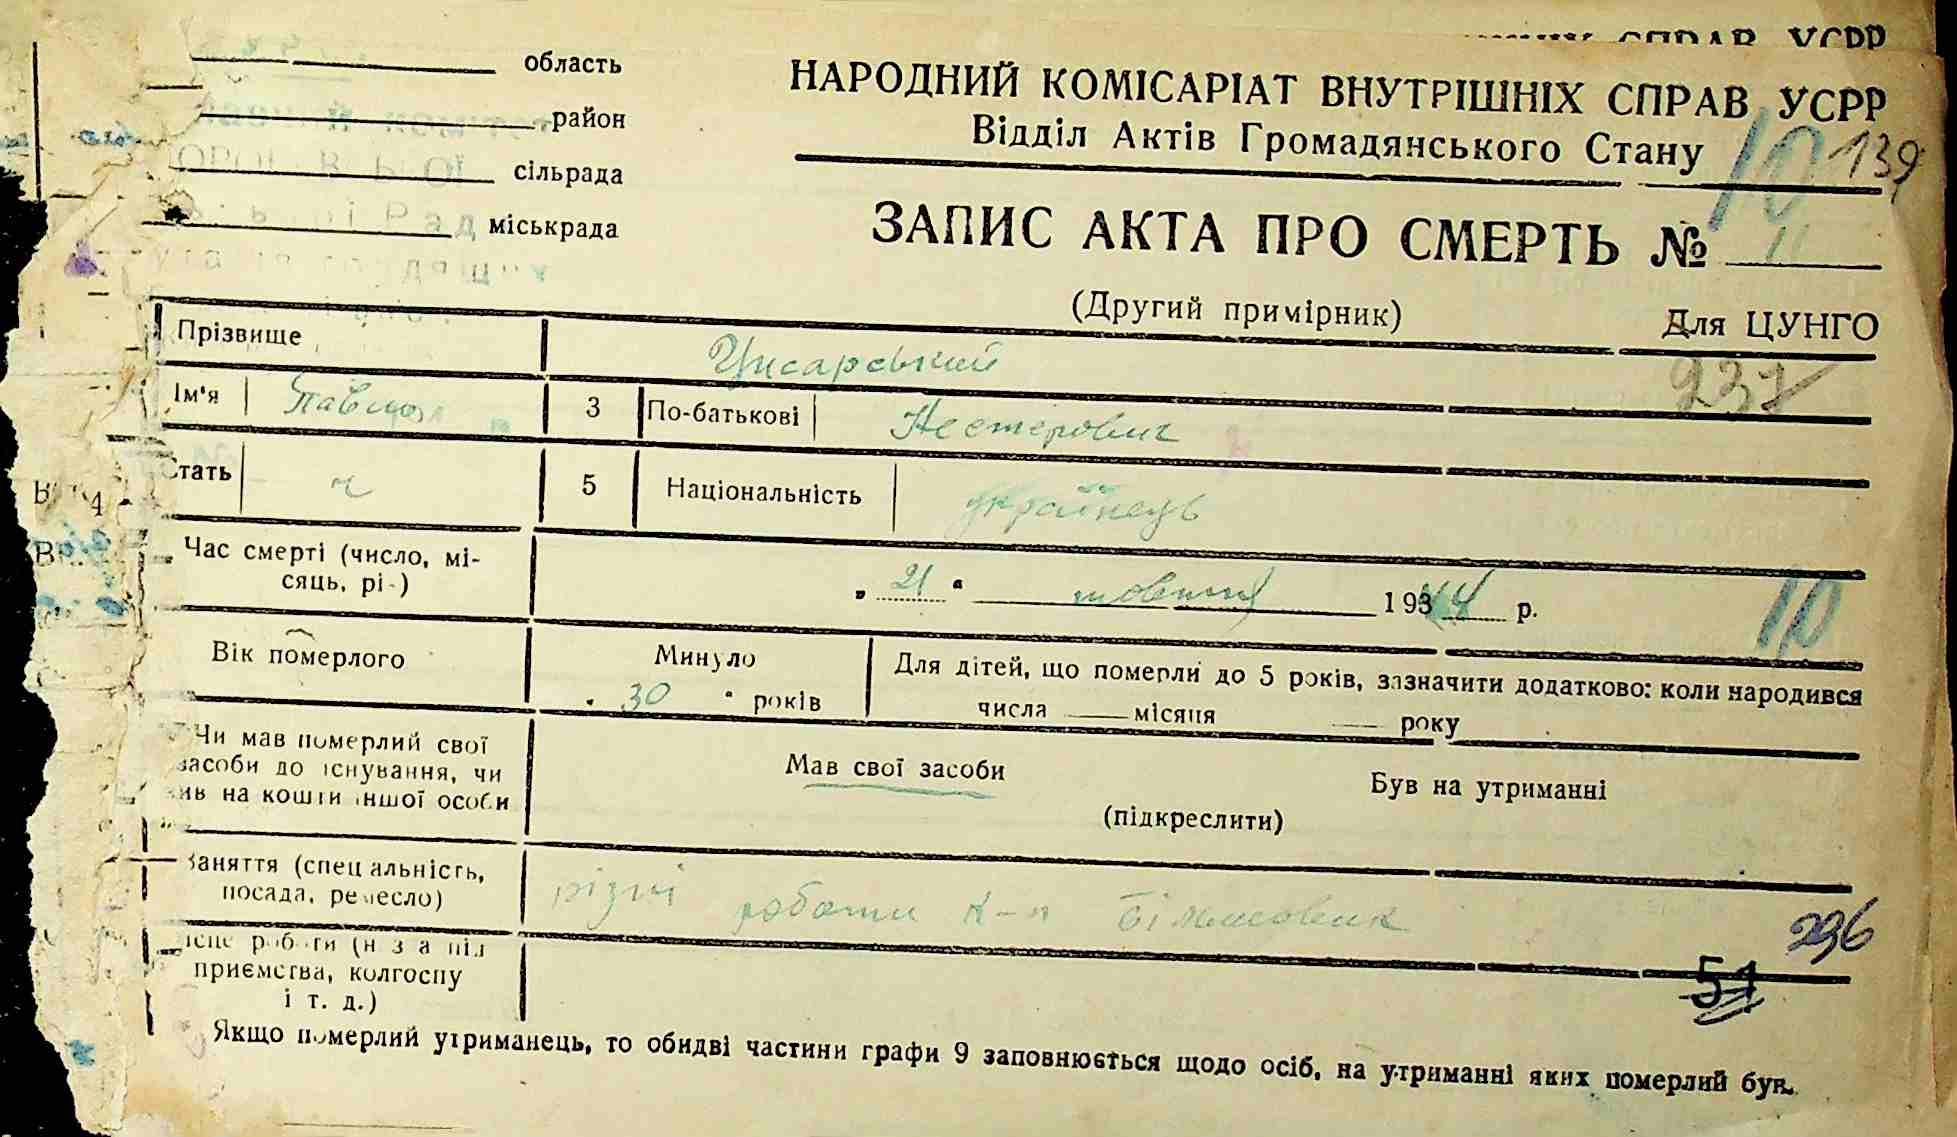 область
район
сільрада
міськрада
СПРАВ УСРР
НАРОДНИЙ КОМІСАРІАТ ВНУТРІШНІХ СПРАВ УСРР
Відділ Актів Громадянського Стану
10 139
ЗАПИС АКТА ПРО СМЕРТЬ № 11
(Другий примірник) Для ЦУНГО
Прізвище Цисарський 237
Ім'я 3 По-батькові Нестерович
Стать ч 5 Національність українець
Час смерті (число, мі-
сяць, рі-)
„ 21 “ жовтня 1944 р.
10
Вік померлого Минуло 30 років
Для дітей, що померли до 5 років, зазначити додатково: коли народився
числа місяця року
Чи мав померлий свої
засоби до існування, чи
жив на кошти іншої особи
Мав свої засоби Був на утриманні
(підкреслити)
Заняття (спеціальність,
посада, ремесло)
різні роботи к-п Більшовик
236
51
Місце роботи (назва під
приємства, колгоспу
і т. д.)
Якщо померлий утриманець, то обидві частини графи 9 заповнюється щодо осіб, на утриманні яких померлий був.